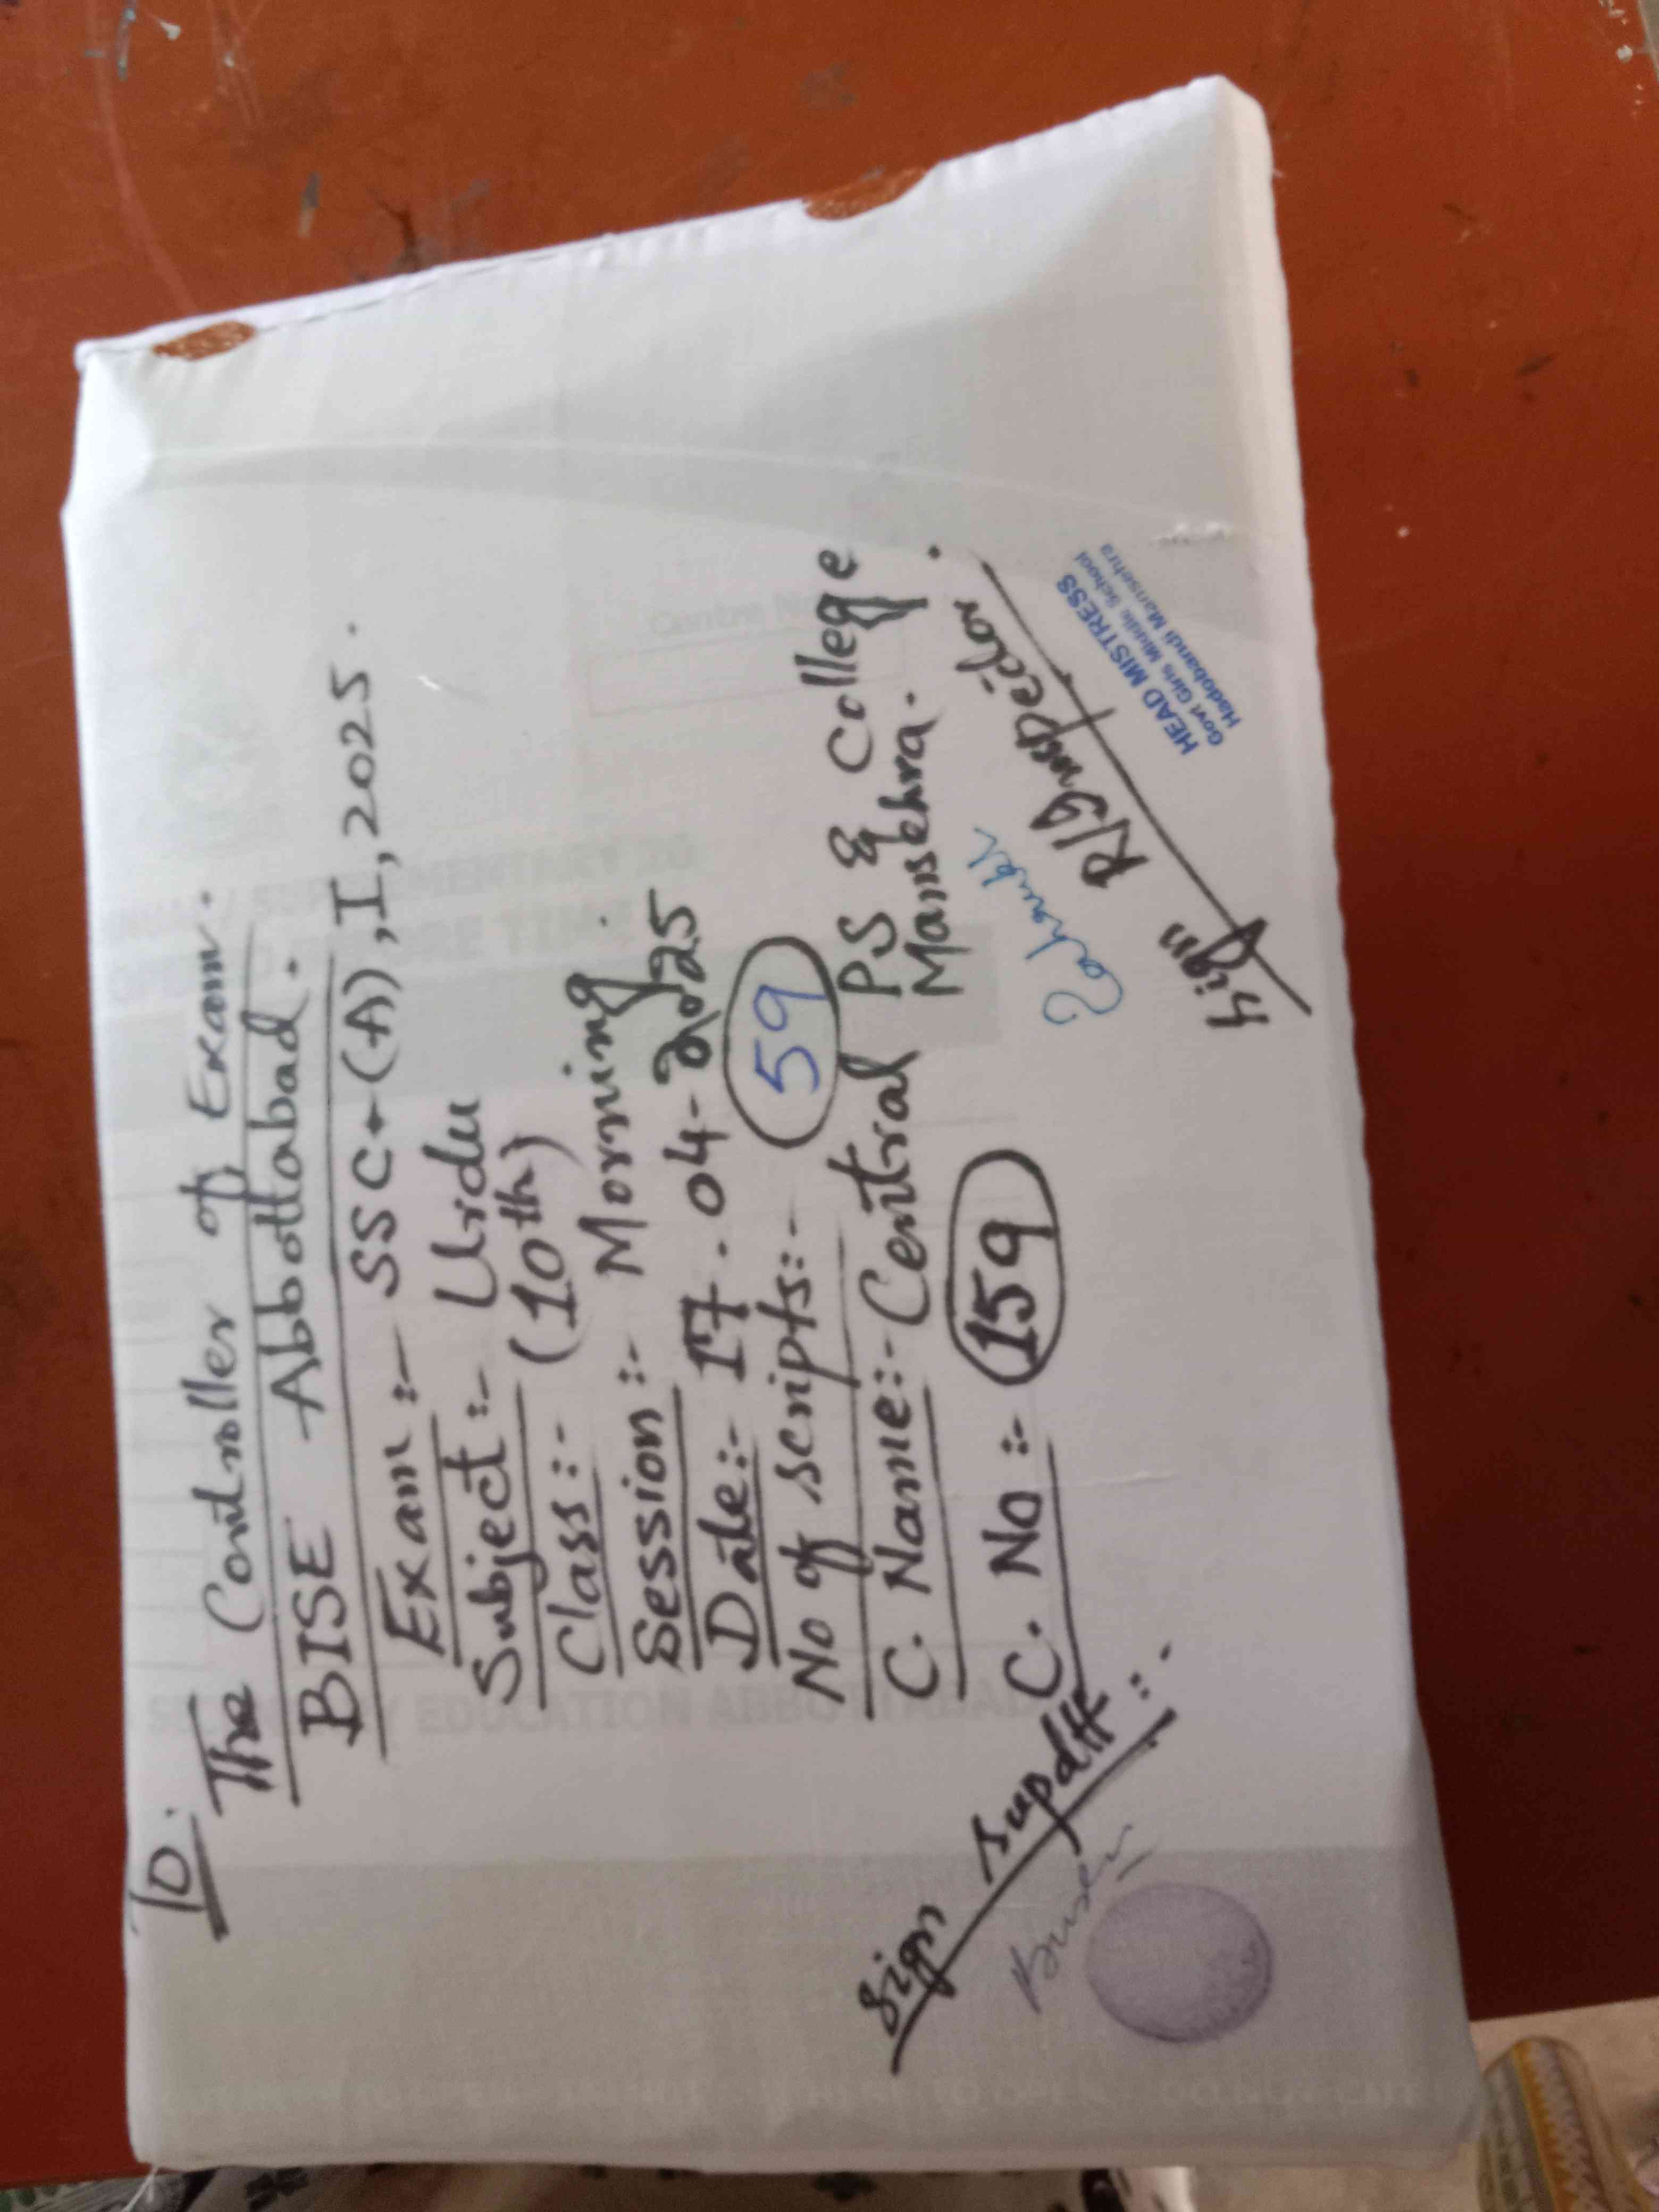 To.
The Controller of Exam.
BISE Abbottabad.
Exam:- SSC-(A), I, 2025.
Subject:- Urdu
Class:- (10th)
Session:- Morning
Date:- 17.04-2025
No of scripts:- 59
C. Name:- Central P.S & College
Mansehra.
C. No:- 159
Sign Supdtt:-
Sign R/Inspector
HEAD MISTRESS
Govt Girls Middle School
Hadobandi Mansehra
Centre No
EDUCATION